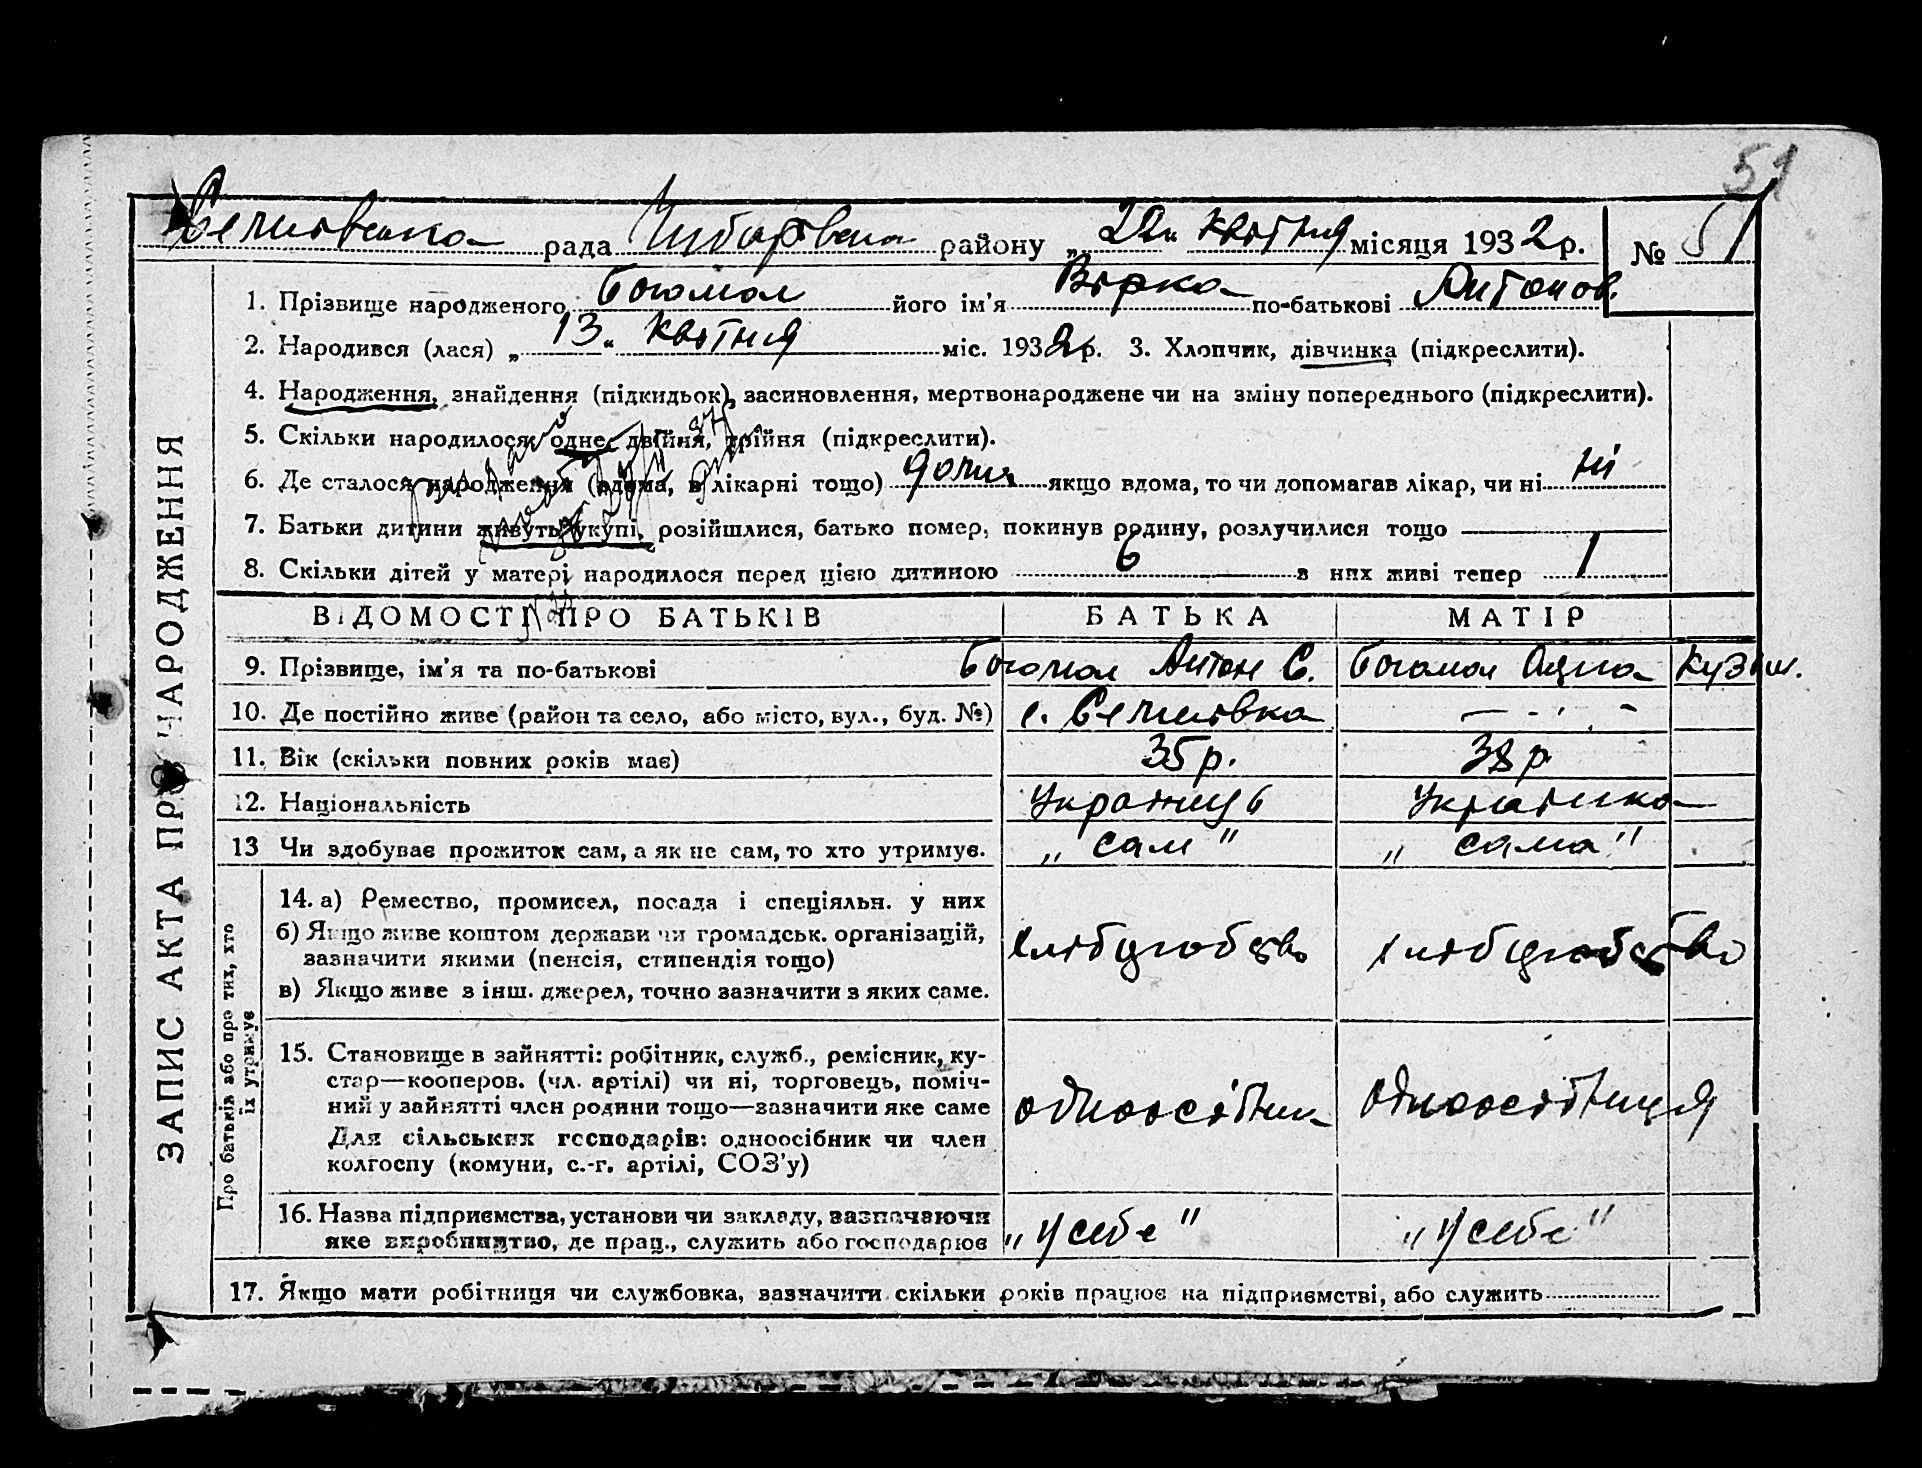 51
Семенівська рада Чубарівськ району „22“ квітня місяця 1932 р. № 51
ЗАПИС АКТА ПРО НАРОДЖЕННЯ
1. Прізвище народженого Богомол його ім'я Вірка по-батькові Антонов.
2. Народився (лася) „13“ квітня міс. 1932 р. 3. Хлопчик, дівчинка (підкреслити).
4. Народження, знайдення (підкидьок), засиновлення, мертвонароджене чи на зміну попереднього (підкреслити).
5. Скільки народилося: одне, двійня, трійня (підкреслити).
6. Де сталося народження (вдома, в лікарні тощо) дома якщо вдома, то чи допомагав лікар, чи ні ні
7. Батьки дитини живуть укупі, розійшлися, батько помер, покинув родину, розлучилися тощо —
8. Скільки дітей у матері народилося перед цією дитиною 6 з них живі тепер 1
ВІДОМОСТІ ПРО БАТЬКІВ БАТЬКА МАТІР
9. Прізвище, ім'я та по-батькові Богомол Антон С. Богомол Кузьм.
10. Де постійно живе (район та село, або місто, вул., буд. №) с. Семенівка — " —
11. Вік (скільки повних років має) 35 р. 38 р.
12. Національність Українець Українка
13 Чи здобуває прожиток сам, а як не сам, то хто утримує. „ сам " „ сама "
Про батьків або про тих, хто їх утримує
14. а) Ремество, промисел, посада і спеціяльн. у них
б) Якщо живе коштом держави чи громадськ. організацій,
зазначити якими (пенсія, стипендія тощо) хліборобство хліборобство
в) Якщо живе з інш. джерел, точно зазначити з яких саме.
15. Становище в зайнятті: робітник, служб., ремісник, ку-
стар—кооперов. (чл. артілі) чи ні, торговець, поміч-
ний у зайнятті член родини тощо—зазначити яке саме одноосібник одноосібниця
Для сільських господарів: одноосібник чи член
колгоспу (комуни, с.-г. артілі, СОЗ'у)
16. Назва підприємства, установи чи закладу, зазначаючи
яке виробництво, де прац., служить або господарює „ у себе " „ у себе "
17. Якщо мати робітниця чи службовка, зазначити скільки років працює на підприємстві, або служить